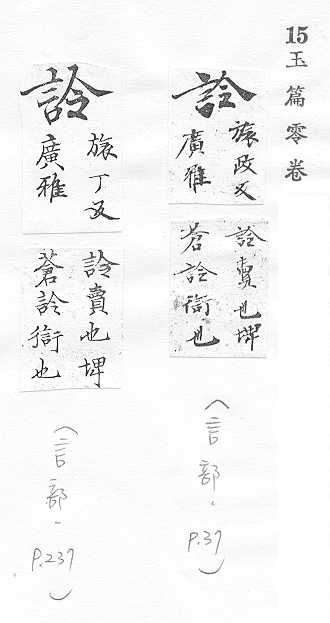 15 玉篇零卷
詅
旅政反
廣雅
詅賣也埤
蒼詅衒也
(言部. P.37)
詅
旅丁反
廣雅
詅賣也埤
蒼詅衒也
(言部. P.237)